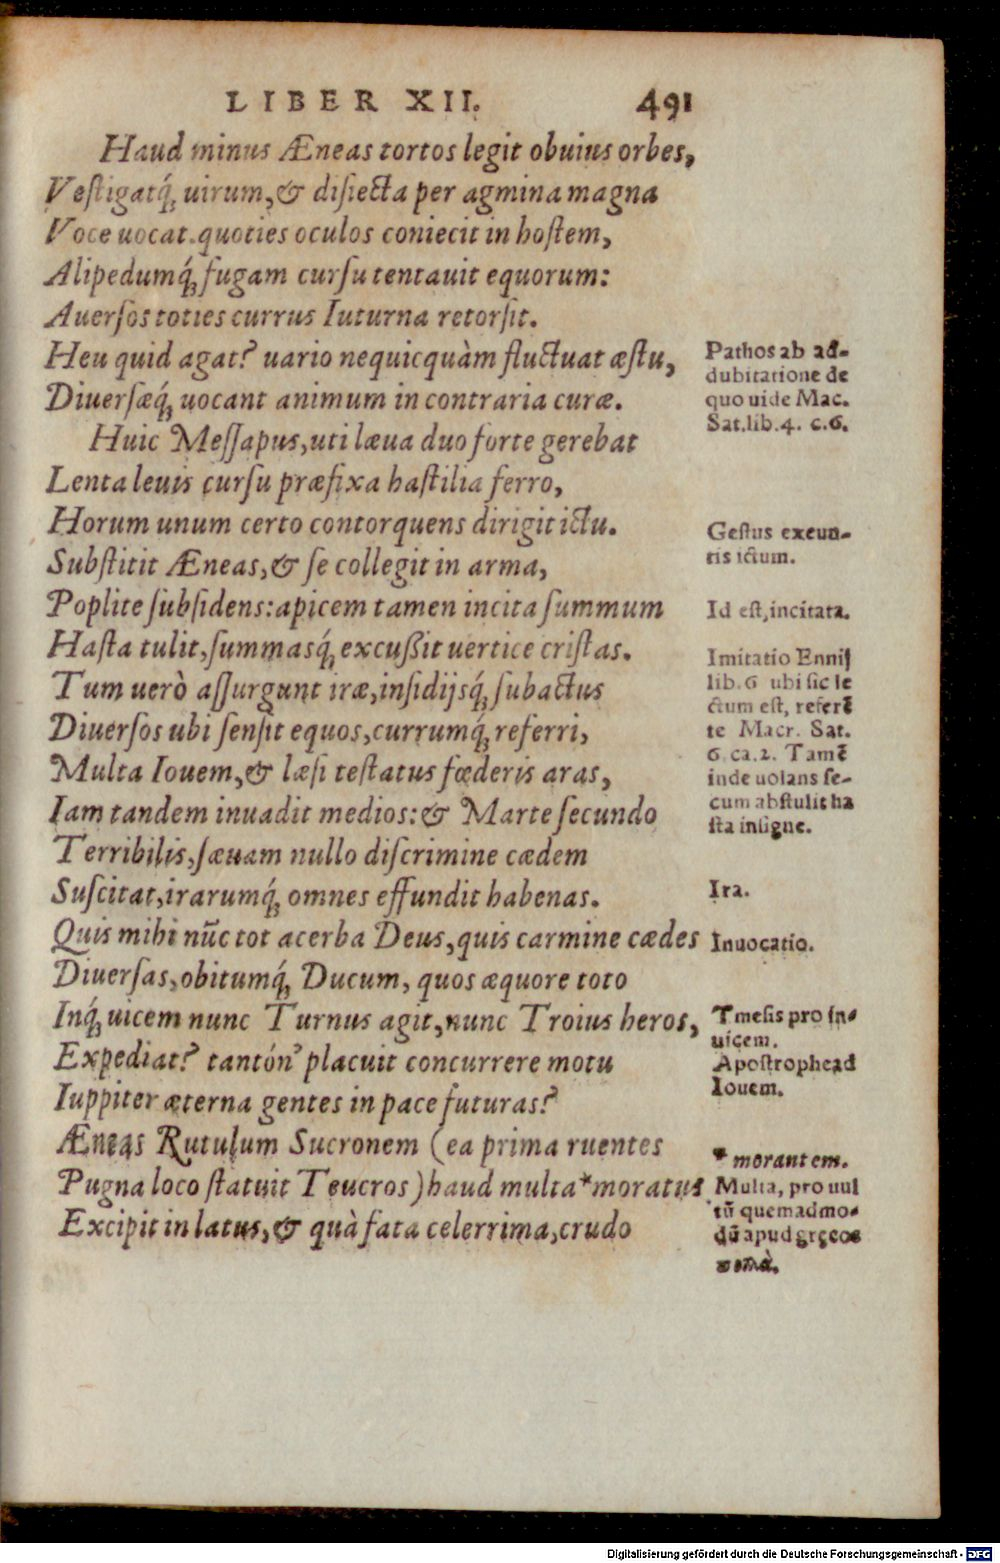 LIBER XII. 491
Haud minus Æneas tortos legit obuius orbes,
Veſtigatq́ꝫ uirum, & diſiecta per agmina magna
Voce uocat. quoties oculos coniecit in hoſtem,
Alipedumq́ꝫ fugam curſu tentauit equorum:
Auerſos toties currus Iuturna retorſit.
Heu quid agat? uario nequicquàm fluctuat æſtu,
Diuerſæq́ꝫ uocant animum in contraria curæ.
Huic Meſſapus, uti læua duo forte gerebat
Lenta leuis curſu præfixa haſtilia ferro,
Horum unum certo contorquens dirigit ictu.
Subſtitit Æneas, & ſe collegit in arma,
Poplite ſubſidens: apicem tamen incita ſummum
Haſta tulit, ſummasq́ꝫ excußit uertice criſtas.
Tum uerò aſſurgunt iræ, inſidijsq́ꝫ ſubactus
Diuerſos ubi ſenſit equos, currumq́ꝫ referri,
Multa Iouem, & læſi teſtatus fœderis aras,
Iam tandem inuadit medios: & Marte ſecundo
Terribilis, ſæuam nullo diſcrimine cædem
Suſcitat, irarumq́ꝫ omnes effundit habenas.
Quis mihi nũc tot acerba Deus, quis carmine cædes
Diuerſas, obitumq́ꝫ Ducum, quos æquore toto
Inq́ꝫ uicem nunc Turnus agit, nunc Troius heros,
Expediat? tantón' placuit concurrere motu
Iuppiter æterna gentes in pace futuras?
Æneas Rutulum Sucronem (ea prima ruentes
Pugna loco ſtatuit Teucros) haud multa *moratus
Excipit in latus, & quà fata celerrima, crudo
Pathos ab ad-
dubitatione de
quo uide Mac.
Sat. lib. 4. c. 6.
Geſtus exeun-
tis ictum.
Id eſt, incitata.
Imitatio Ennij
lib. 6 ubi ſic le
ctum eſt, referẽ
te Macr. Sat.
6. ca. 2. Tamẽ
inde uolans ſe-
cum abſtulit ha
ſta inſigne.
Ira.
Inuocatio.
Tmeſis pro in-
uicem.
Apoſtrophe ad
Iouem.
* morantem.
Multa, pro mul
tũ quemadmo-
dũ apud gręcos
πολλὰ.
Digitalisierung gefördert durch die Deutsche Forschungsgemeinschaft - DFG